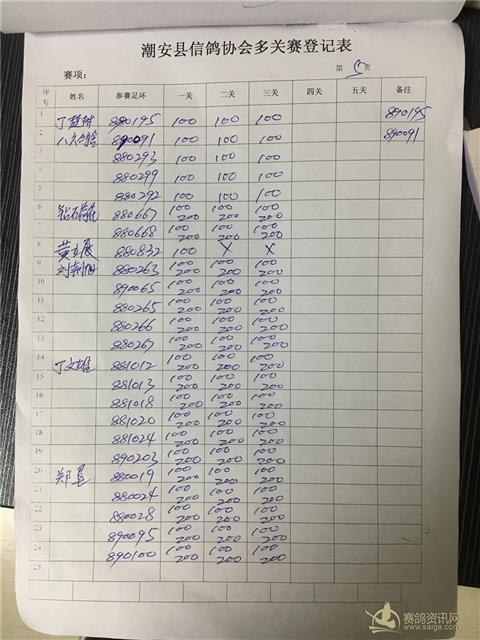 潮安县信鸽协会多关赛登记表
赛项： 第 5 页
序号 姓名 参赛足环 一关 二关 三关 四关 五关 备注
1 880195 100 100 100 890195
2 890091 100 100 100 890091
3 880293 100 100 100
4 880299 100 100 100
5 880292 100 100 100
6 钻石荷花 880667 100 200 100 200 100 200
7 880668 100 200 100 200 100 200
8 880832 100 X X
9 880263 100 200 100 200 100 200
10 890065 100 200 100 200 100 200
11 880265 100 200 100 200 100 200
12 880266 100 200 100 200 100 200
13 880267 100 200 100 200 100 200
14 丁文雄 881012 100 200 100 200 100 200
15 881013 100 200 100 200 100 200
16 881018 100 200 100 200 100 200
17 881020 100 200 100 200 100 200
18 881024 100 200 100 200 100 200
19 890203 100 200 100 200 100 200
20 880019 100 200 100 200 100 200
21 880024 100 200 100 200 100 200
22 880028 100 200 100 200 100 200
23 890095 100 200 100 200 100 200
24 890100 100 200 100 200 100 200
25
赛鸽资讯网
www.saige.com